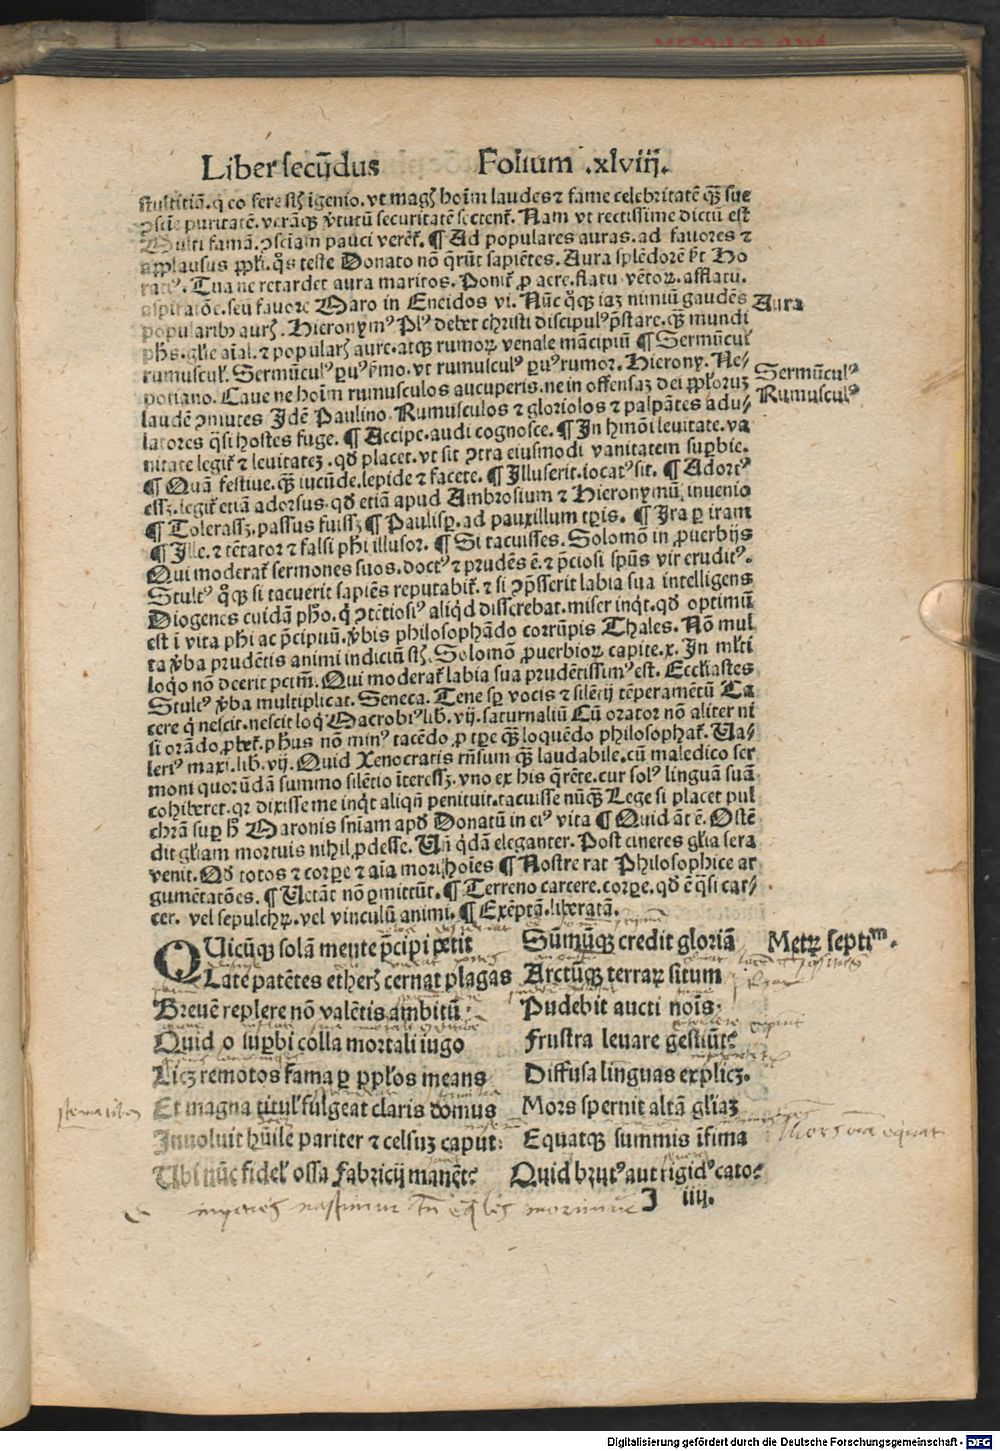 Liber secūdus Folium .xlviij.
stultitiā. q̄ eo fere sūt īgenio. vt magꝭ hoīm laudes ⁊ fame celebritatē q̄ꝫ sue
ↄsciē puritatē. verāqꝫ v̓tutū securitatē sectent̄. Nam vt rectissime dictū est
Multi famā. ↄsciam pauci verēt̄. ¶ Ad populares auras. ad fauores ⁊
applausus pp̄li. q̄s teste Donato nō q̄rūt sapiētes. Aura splēdorē s̄t Ho
ratiꝰ. Tua ne retardet aura maritos. Ponit̄ ꝓ aere. flatu vētoꝝ. afflatu.
aspiratōe. seu fauore Maro in Eneidos vi. Nūc q̄qꝫ iaꝫ nimiū gaudēs
popularibꝰ aurꝭ. Hieronymꝰ Plꝰ debet christi discipulꝰ p̄stare. q̄ꝫ mundi
Aura
phs̄. glīe aīal. ⁊ popularꝭ aure. atqꝫ rumoꝝ venale mācipiū ¶ Sermūcul̄
rumuscul̄. Sermūculꝰ ꝑuꝰ p̄mo. vt rumusculꝰ ꝑuꝰ rumor. Hierony. Ne-
potiano. Caue ne hoīm rumusculos aucuperis. ne in offensaꝫ dei pp̄loruꝫ
Sermūculꝰ
laudē ↄmutes Idē Paulino. Rumusculos ⁊ gloriolos ⁊ palpātes adu-
Rumusculꝰ
latores q̄si hostes fuge. ¶ Accipe. audi cognosce. ¶ In hmōi leuitate. va
nitate legit̄ ⁊ leuitateꝫ. qd̄ placet. vt sit ↄtra eiusmodi vanitatem suꝑbie.
¶ Quā festiue. q̄ꝫ iucūde. lepide ⁊ facete. ¶ Illuserit. iocatꝰ sit. ¶ Adortꝰ
essꝫ. legit̄ etiā adorsus. qd̄ etiā apud Ambrosium ⁊ Hieronymū inuenio
¶ Tolerassꝫ. passus fuissꝫ ¶ Paulisꝑ. ad pauxillum tp̄is. ¶ Ira ꝑ iram
¶ Ille. ⁊ tētator ⁊ falsi phī illusor. ¶ Si tacuisses. Solomō in ꝓuerbijs
Qui moderat̄ sermones suos. doctꝰ ⁊ prudēs ē. ⁊ p̄ciosi spūs vir eruditꝰ.
Stultꝰ q̄qꝫ si tacuerit sapiēs reputabit̄. ⁊ si ↄp̄sserit labia sua intelligens
Diogenes cuidā pho. q̄ ↄtētiosiꝰ aliq̄d disserebat. miser inq̄t. qd̄ optimū
est ī vita phī ac p̄cipuū. v̓bis philosophādo corrūpis Thales. Nō mul
ta v̓ba prudētis animi indiciū sūt. Solomō ꝓuerbioꝝ capite. x. In ml̄ti
loq̄o nō deerit pctm̄. Qui moderat̄ labia sua prudētissimꝰ est. Eccl̄iastes
Stultꝰ v̓ba multiplicat. Seneca. Tene sꝑ vocis ⁊ silētij tēperamētū Ta
cere q̄ nescit. nescit loq̄ Macrobiꝰ lib. vij. saturnaliū Cū orator nō aliter ni
si orādo ꝓbet̄. phus nō minꝰ tacēdo ꝓ tp̄e q̄ꝫ loquēdo philosophat̄. Va-
leriꝰ maxi. lib. vij. Quid Xenocratis rn̄sum q̄ꝫ laudabile. cū maledico ser
moni quorūdā summo silētio īteressꝫ. vno ex his q̄rēte. cur solꝰ linguā suā
cohiberet. qꝛ dixisse me inq̄t aliqn̄ penituit. tacuisse nūq̄ꝫ Lege si placet pul
chrā suꝑ h̄ Maronis sn̄iam apd̄ Donatū in eiꝰ vita ¶ Quid āt ē. Ostē
dit gl̄iam mortuis nihil ꝓdesse. Vn̄ q̄dā eleganter. Post cineres gl̄ia sera
venit. Qd̄ totos ⁊ corpe ⁊ aīa mori hoīes ¶ Nostre rat Philosophice ar
gumētatōes. ¶ Vetāt nō ꝑmittūt. ¶ Terreno carcere. corpe. qd̄ ē q̄si car-
cer. vel sepulchꝝ. vel vinculū animi. ¶ Exēptā. liberatā.
QUicūqꝫ solā mente p̄cipi petit Sūmūqꝫ credit gloriā Metꝝ septiᵐ.
Late patētes etherꝭ cernat plagas Arctūqꝫ terraꝝ situm
Breuē replere nō valētis ambitū Pudebit aucti noīs.
Quid o suꝑbi colla mortali iugo Frustra leuare gestiūt?
Licꝫ remotos fama ꝑ pp̄los means Diffusa linguas explicꝫ.
Et magna titul̄ fulgeat claris domus Mors spernit altā gl̄iaꝫ
Inuoluit hūile pariter ⁊ celsuꝫ caput. Equatqꝫ summis īfima
Mors oīa equat
Vbi nūc fidel̄ ossa Fabricij manēt? Quid brutꝰ aut rigidꝰ cato?
nascimur morimur
I iiij.
Digitalisierung gefördert durch die Deutsche Forschungsgemeinschaft - DFG